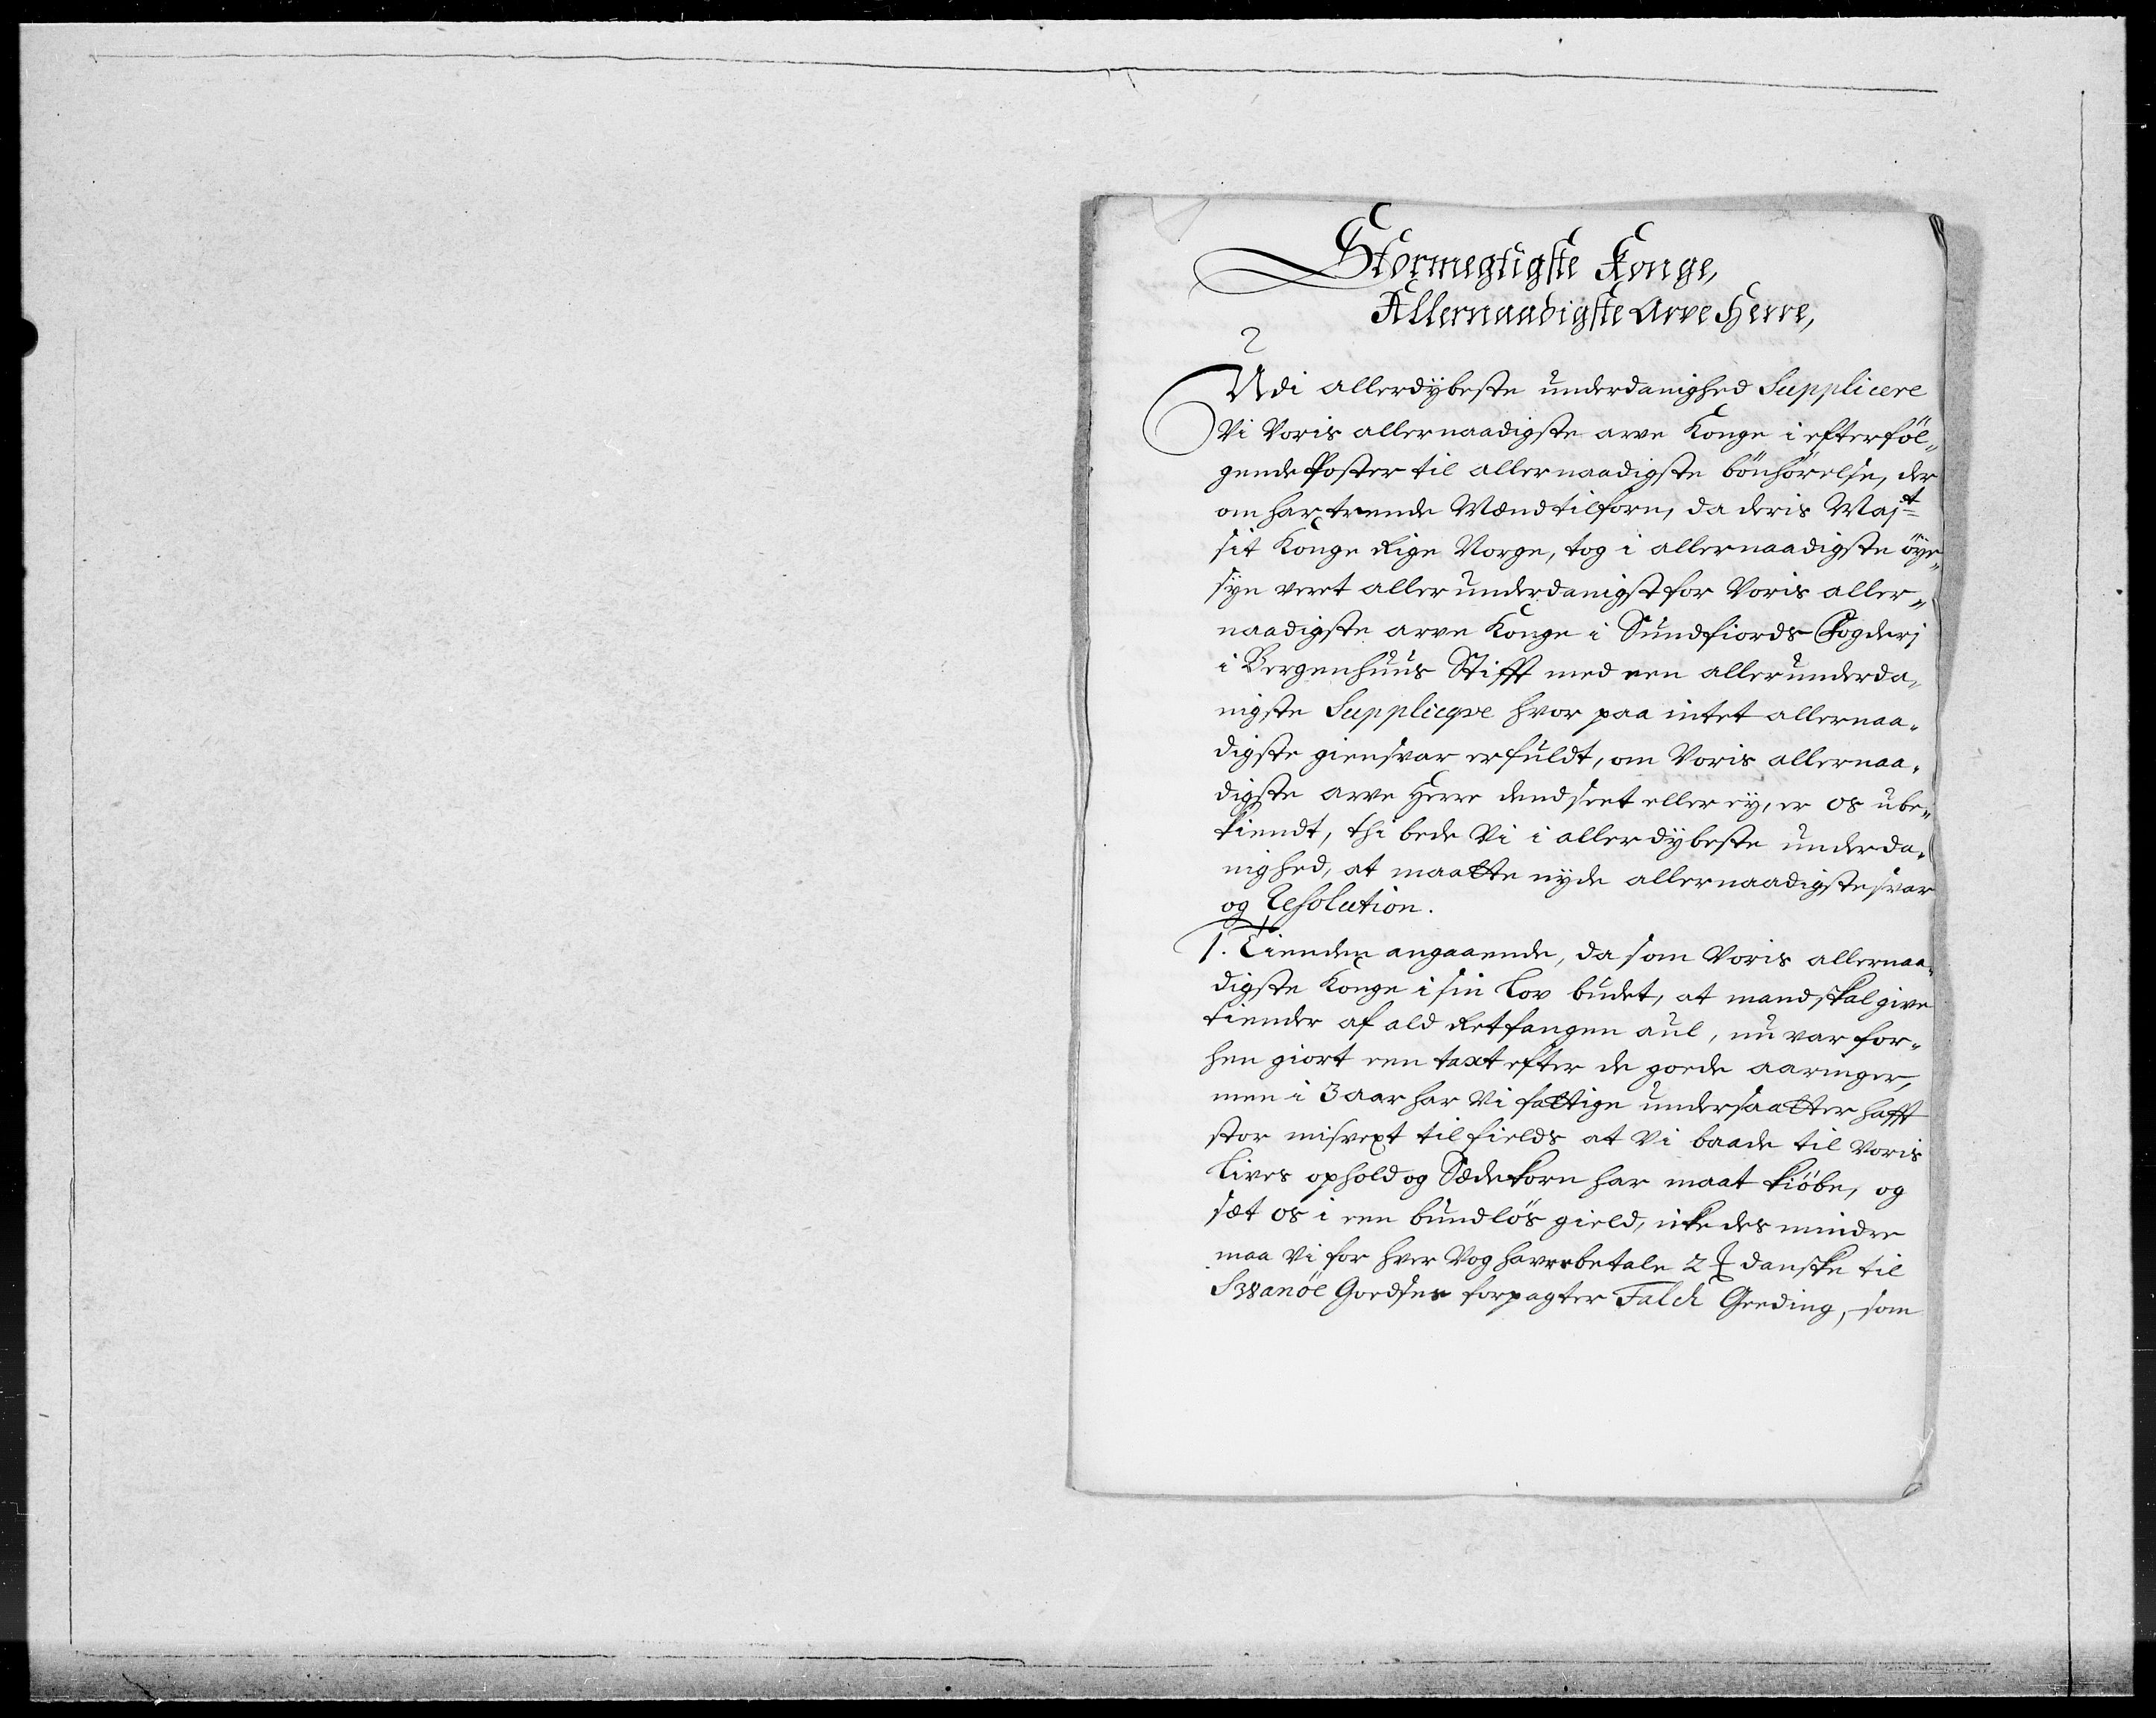 Stormegtigste Konge,
Allernaadigste Arve Herre,
Udi allerdÿbeste underdanighed Supplicere
Vi Voris allernaadigste arve Konge i efterföl„
gende Poster til allernaadigste bönhörelse, der
om har trende Mænd tilforn, da deris Majt
sit Konge Rige Norge, tog i allernaadigste öye„
syn veret allerunderdanigst for Voris aller„
naadigste arve Konge i Sundfiords Fogderj
i Bergenhuus Stifft med een allerunderda„
nigste Supplicqve hvor paa intet allernaa„
digste giensvar erfuldt, om Voris allernaa„
digste arve Herre dend seet eller eÿ, er os ube„
kiendt, thi bede Vi i allerdÿbeste underda„
nighed, at maatte nÿde allernaadigste svar
og Resolution.
1. Tienden angaaende, da som Voris allernaa„
digste Konge i sin Lov budet, at mand skal give
tiender af ald Retfangen aul, nu var for„
hen giort een taxt efter de goede aaringer,
men i 3 aar har Vi fattige undersaatter hafft
stor misvext til fields at Vi baade til Voris
Lives ophold og Sædekorn har maat kiöbe, og
sæt os i een bundlös gield, icke des mindre
maa Vi for hver Vog havre betale 2 ꝷ danske til
Swanöe Goedses forpagter Falck Geeding, som